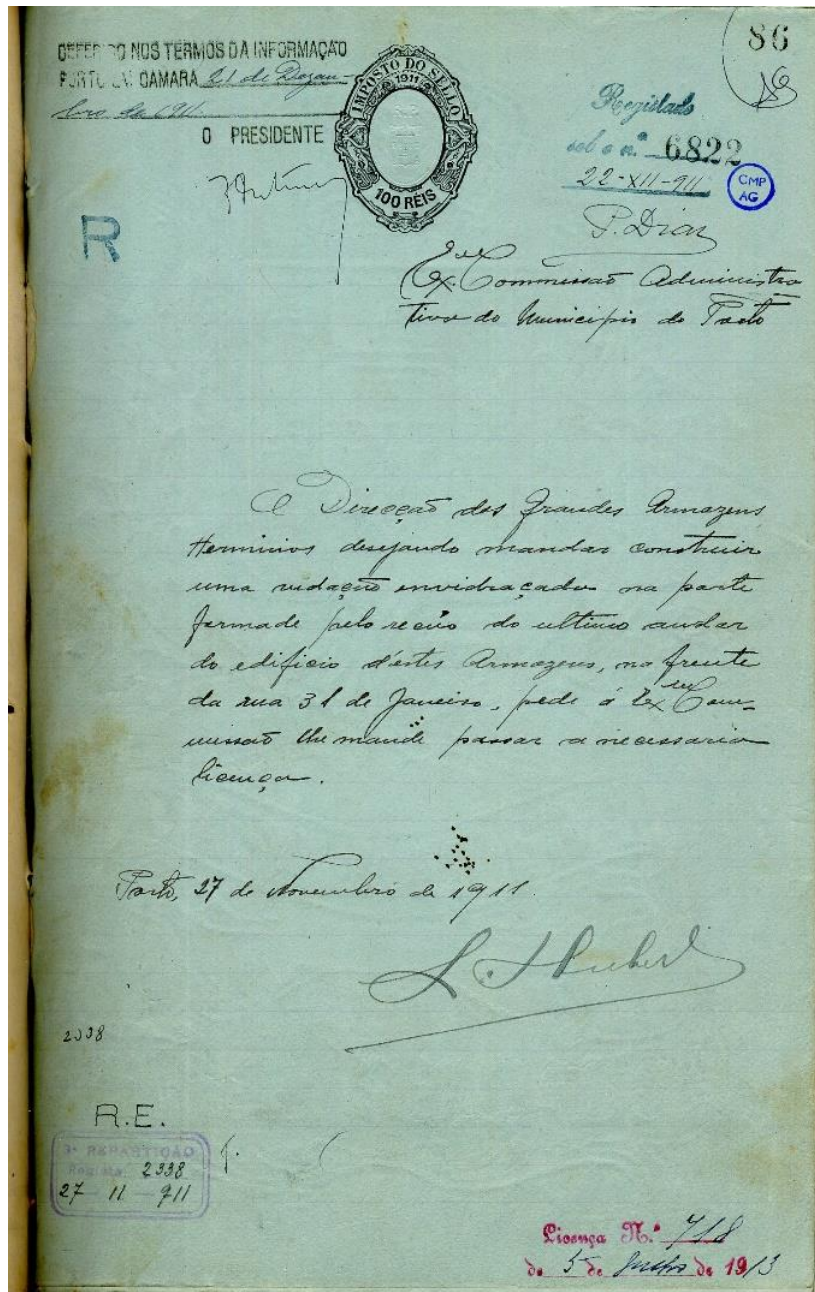 86
DEFERIDO NOS TERMOS DA INFORMAÇÃO
PORTO E M. CAMARA 21 de Dezem-
bro de 1911
O PRESIDENTE
IMPOSTO DO SELLO
1911
100 RÉIS
Registado
sob o n.º 6822
22-XII-911
P. Dias
CMP
AG
R
Ex.ma Commissão Administra
tiva do Municipio do Porto
A Direcção dos Grandes Armazens
Herminios desejando mandar construir
uma vedação envidraçada na parte
formada pelo recuo do ultimo andar
do edificio d'estes Armazens, na frente
da rua 31 de Janeiro, pede á Ex.ma Com-
missão lhe mande passar a necessaria
licença.
Porto, 27 de Novembro de 1911
2338
R.E.
3ª REPARTIÇÃO
Registo 2338
27 11 911
Licença N.º 718
de 5 de de 1913